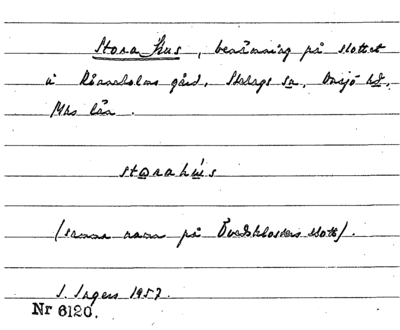 Stora hus, benämning på slottet
å Rönneholms gård, Stehags sn, Onsjö hd,
Mhs län.
storahús
(samma namn på Övedsklosters slott).
I. Ingers 1957.
Nr 6120.